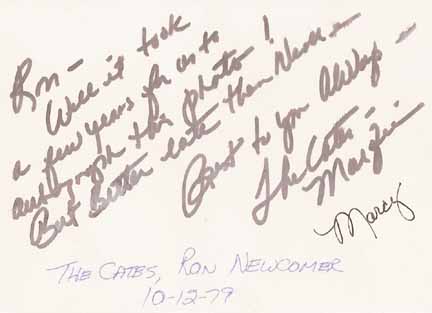 Ron —
Well it took
a few years for us to
autograph this photo!
But Better late than Never —
Best to you Always —
The Cates —
Margie
Marcy
THE CATES, RON NEWCOMER
10-12-79